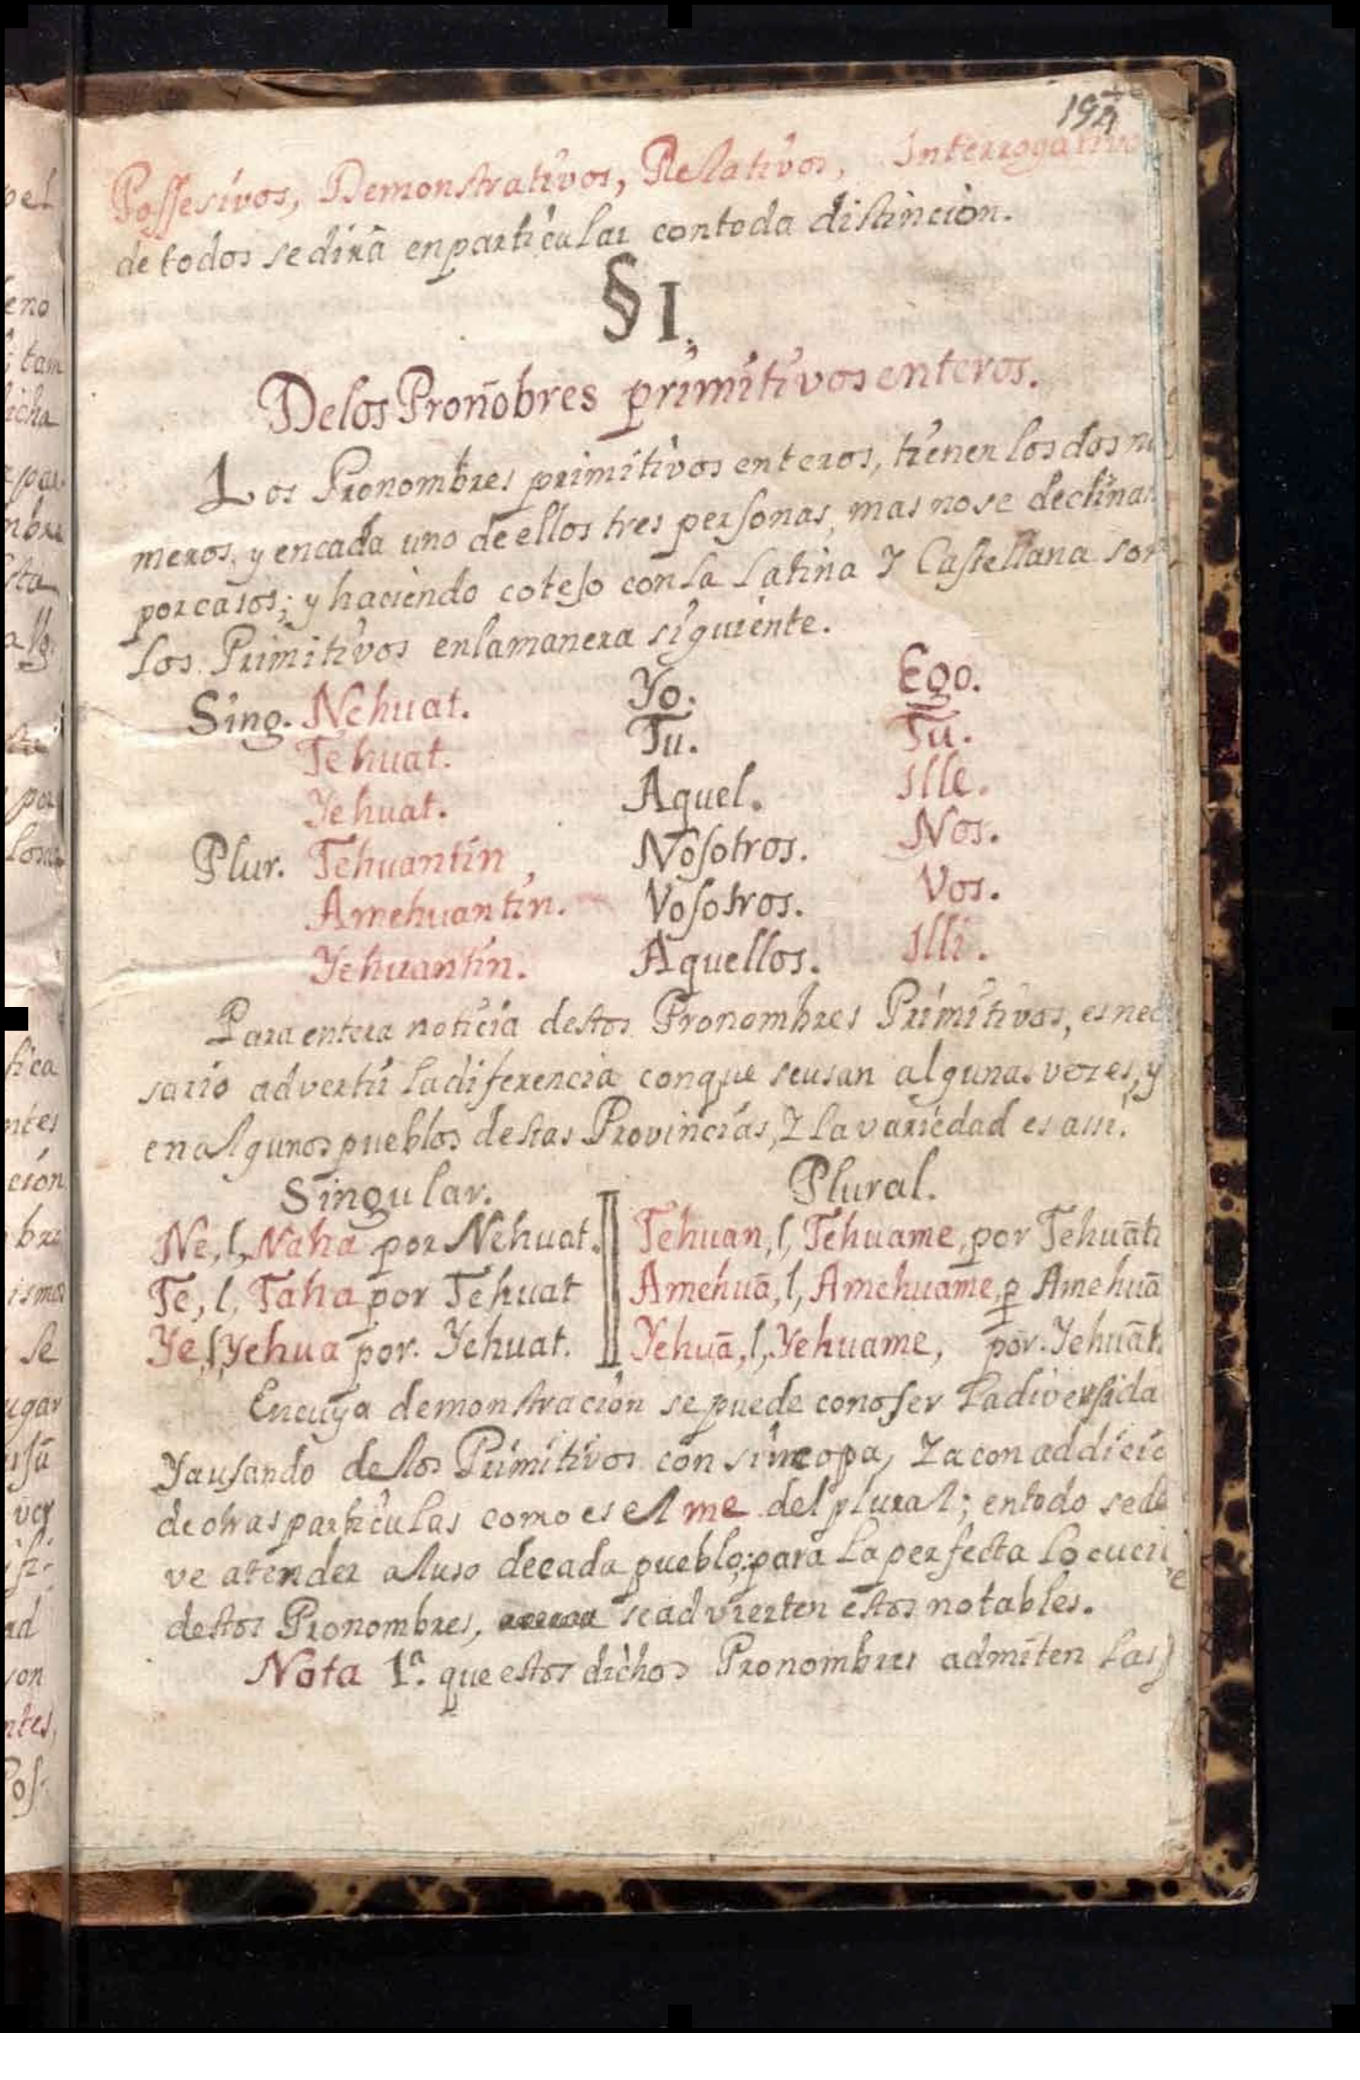 194
Possesivos, Demonstrativos, Relativos, Interrogativo
de todos se dirâ en particular con toda distinciòn.
§ I.
De los Proñobres primitivos enteros.
Los Pronombres primitivos enteros, tienen los dos nu
meros, y en cada uno de ellos tres personas, mas no se declinan
por casos; y haciendo cotejo con la Latina y Castellana son
los Primitivos en la manera siguiente.
Sing. Nehuat. Yo. Ego.
Tehuat. Tu. Tu.
Yehuat. Aquel. Ille.
Plur. Tehuantin, Nosotros. Nos.
Amehuantin. Vosotros. Vos.
Yehuantin. Aquellos. Illi.
Para entera noticia destos Pronombres Primitivos, es nece
sario advertir la diferencia con que se usan algunas vezes, y
en algunos pueblos destas Provincias, y la variedad es assi.
Singular. Plural.
Ne, l, Naha por Nehuat. Tehuan, l, Tehuame, por Tehuāti
Te, l, Taha por Tehuat Amehuā, l, Amehuame, p Amehuā
Ye, l, Yehua por. Yehuat. Yehuā, l, Yehuame, por. Yehuāt
En cuya demonstración se puede conoser la diversida
Ya usando de los Primitivos con sincopa, Ya con addicio
de otras particulas como es el me del plural; en todo se de
ve atender al uso de cada pueblo; para la perfecta locuci
destos Pronombres, se advierten estos notables.
Nota 1ª. que estos dichos Pronombres admiten las
pel
eno
tam
dicha
par
mbre
sta
por
fica
ntes
ción
bre
ismo
se
ugar
ver
ad
son
ntes,
Pos-